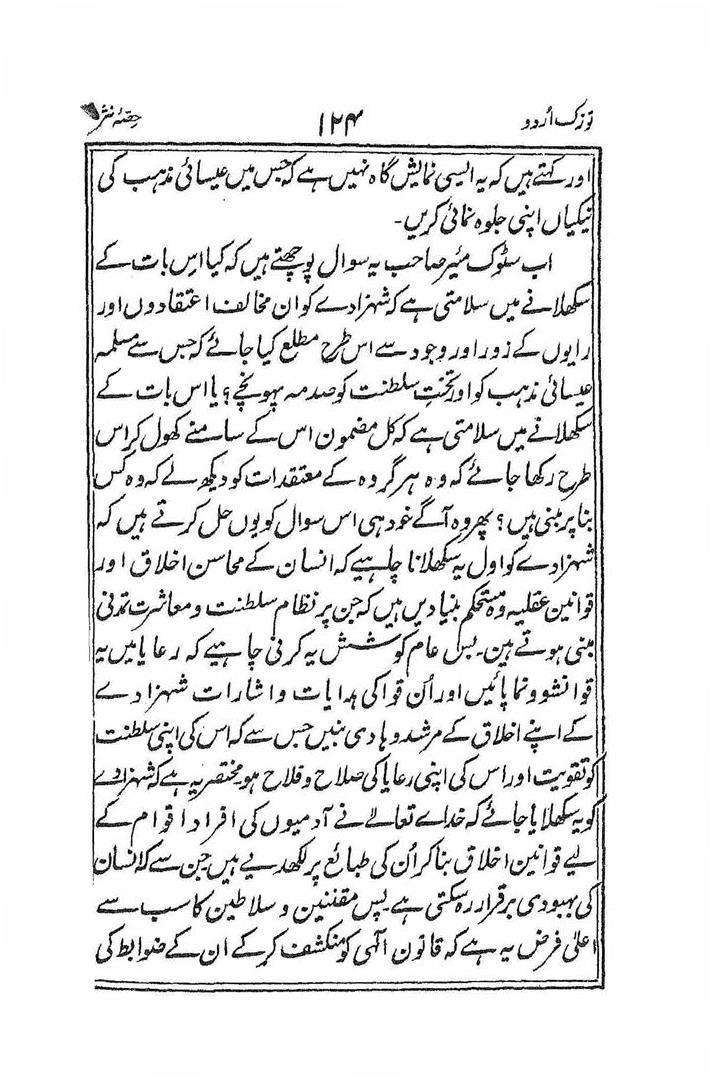 توزک اُردو ۱۲۴ حِصّۂ نثر
اور کہتے ہیں کہ یہ ایسی نمایش گاہ نہیں ہے کہ جس میں عیسائی مذہب کی
نیکیاں اپنی جلوہ نمائی کریں۔
اب سٹوک میئر صاحب یہ سوال پوچھتے ہیں کہ کیا اِس بات کے
سکھلانے میں سلامتی ہے کہ شہزادے کو ان مخالف اعتقادوں اور
رایوں کے زور اور وجود سے اس طرح مطلع کیا جائے کہ جس سے مسلمہ
عیسائی مذہب کو اور تختِ سلطنت کو صدمہ پہونچے؟ یا اس بات کے
سکھلانے میں سلامتی ہے کہ کل مضمون اس کے سامنے کھول کر اس
طرح رکھا جائے کہ وہ ہر گروہ کے معتقدات کو دیکھ لے کہ وہ کس
بنا پر مبنی ہیں؟ پھر وہ آگے خود ہی اس سوال کو یوں حل کرتے ہیں کہ
شہزادے کو اول یہ سکھلانا چاہیے کہ انسان کے محاسن اخلاق اور
قوانین عقلیہ وہ مستحکم بنیادیں ہیں کہ جن پر نظام سلطنت و معاشرت تمدنی
مبنی ہوتے ہین۔ پس عام کوشش یہ کرنی چاہیے کہ رعایا میں یہ
قوا نشوونما پائیں اور اُن قوا کی ہدایات و اشارات شہزادے
کے اپنے اخلاق کے مرشد و ہادی بنیں جس سے کہ اس کی اپنی سلطنت
کو تقویت اور اس کی اپنی رعایا کی صلاح و فلاح ہو۔ مختصر یہ ہے کہ شہزادے
کو یہ سکھلایا جائے کہ خداے تعالےٰ نے آدمیوں کی افراد اقوام کے
لیے قوانین اخلاق بنا کر اُن کی طبائع پر لکھ دیے ہیں جن سے کہ انسان
کی بہبودی برقرار رہ سکتی ہے۔ پس مقننین و سلاطین کا سب سے
اعلیٰ فرض یہ ہے کہ قانون الٰہی کو منکشف کر کے ان کے ضوابط کی